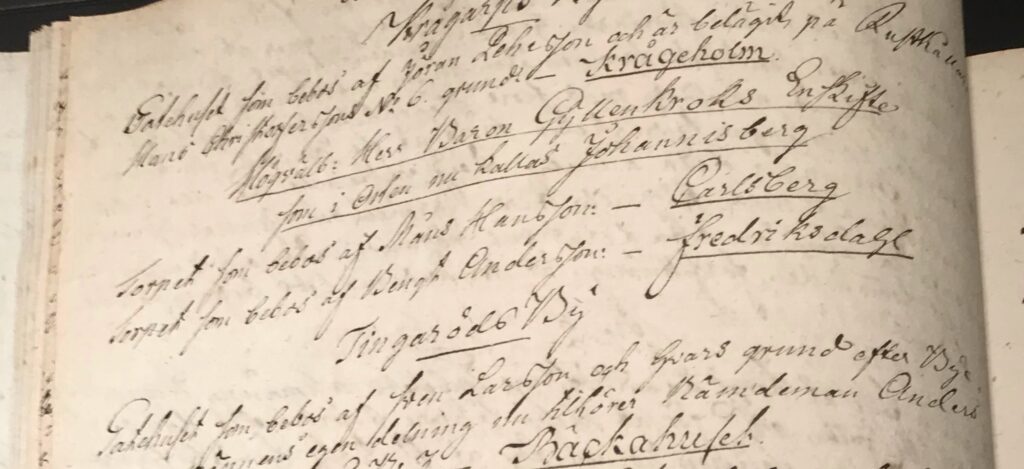 Krågarps
Gatehuset som bebos af Jöran Pehrsson och är belägit på
Hans Christoffersons No 6. grund: – Krågeholm.
Högvälb: Herr Baron Gyllenkroks Enskifte
som i Orten nu kallas Johannisberg
Torpet som bebos af Måns Hansson: – Carlsberg
Torpet som bebos af Bengt Andersson: – Fredriksdahl
Tingaröds By
Gatehuset som bebos af Sven Larsson och hvars grund efter Bye
männens egen delning nu tilhörer Nämdeman Anders
Bäckahuset.